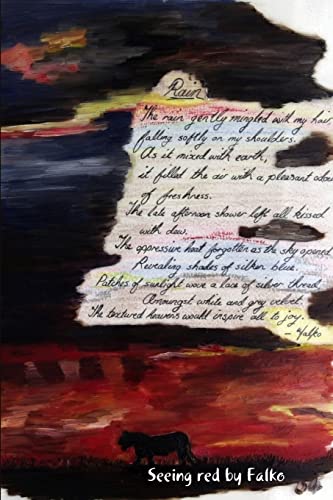 Rain
The rain gently mingled with my hair
falling softly on my shoulders.
As it mixed with earth,
it filled the air with a pleasant odour
of freshness.
The late afternoon shower left all kissed
with dew.
The oppressive heat forgotten as the sky opened,
Revealing shades of silken blue.
Patches of sunlight wove a lace of silver thread,
Amongst white and grey velvet.
The textured heavens would inspire all to joy.
- Falko
Seeing red by Falko